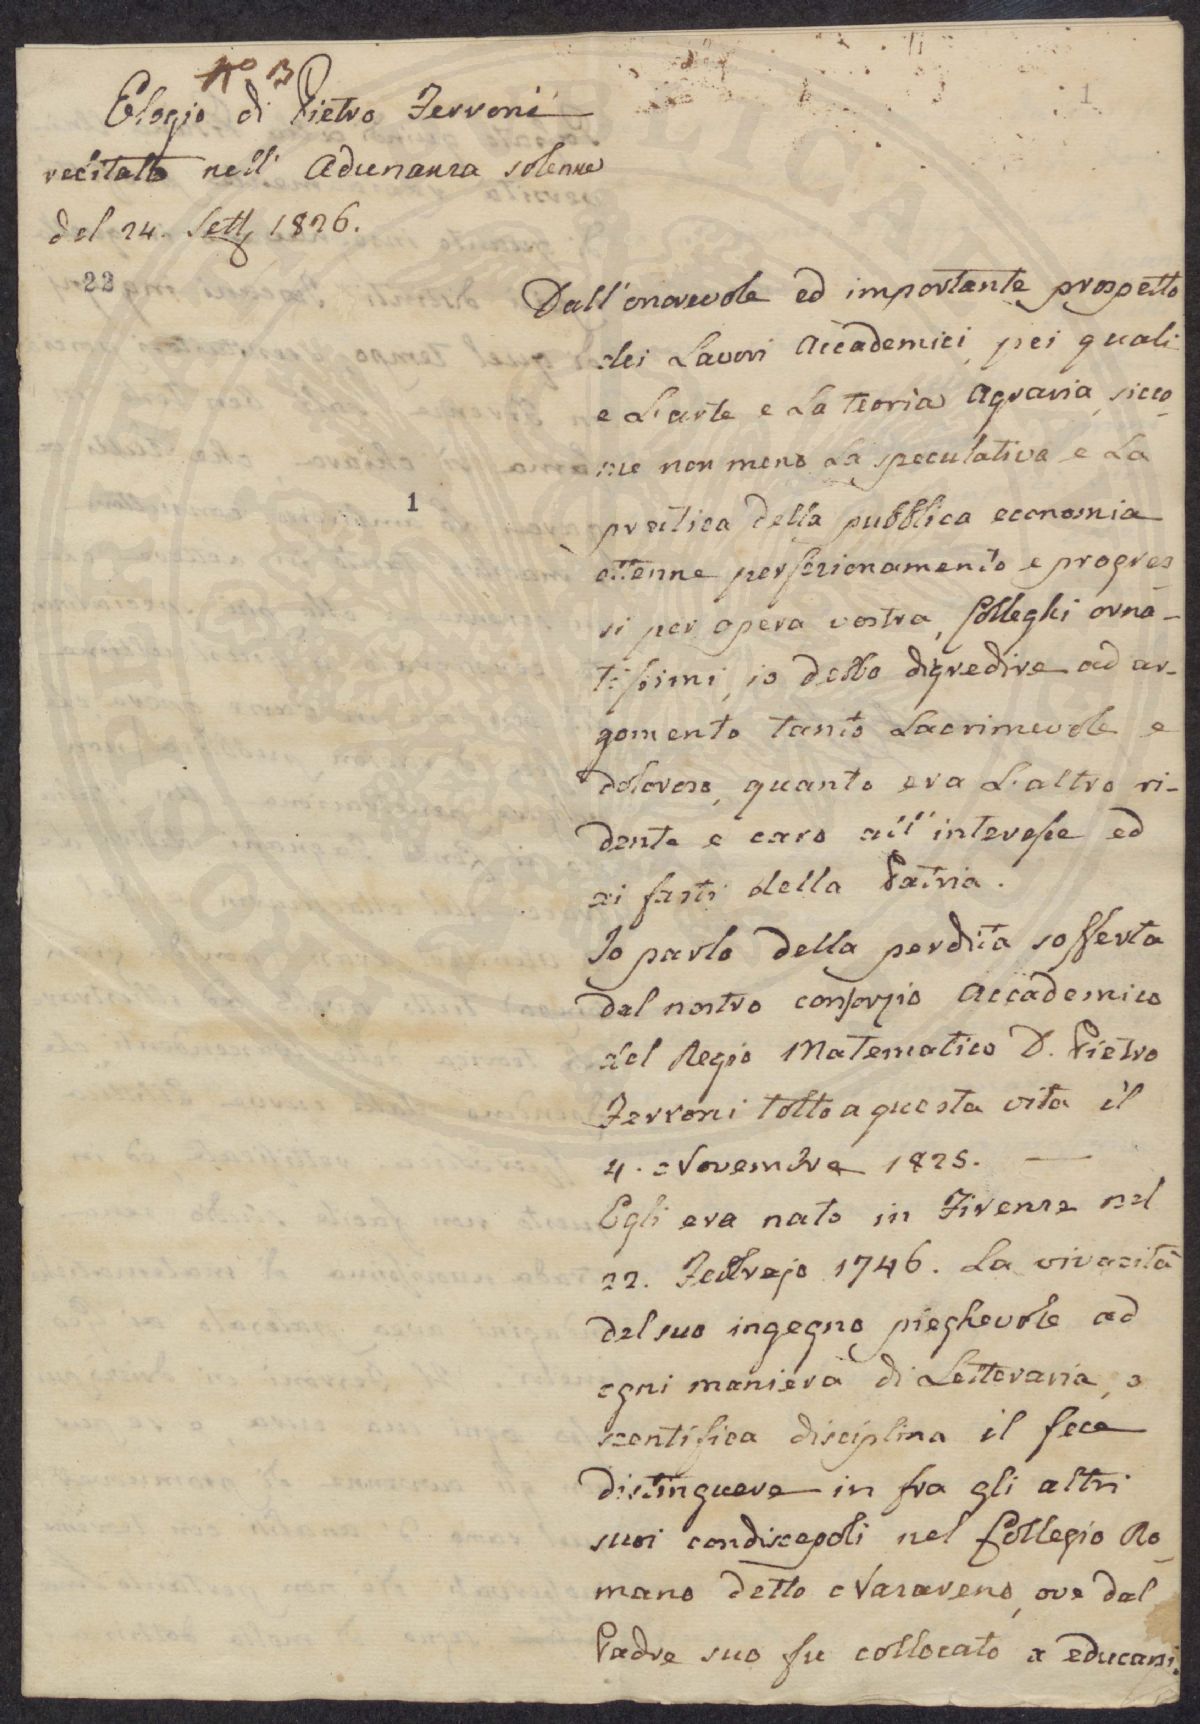 No. 13
Elogio di Pietro Ferroni
recitato nell' Adunanza solenne
del 24. Sett. 1826.
22
1
1
Dall'onorevole ed importante prospetto
dei Lavori Accademici, pei quali
e L'arte e La teoria Agraria, sicco-
me non meno La speculativa e La
pratica della pubblica economia
ottenne perfezionamento e progres-
si per opera vostra, Colleghi orna-
tissimi, io debbo digredire ad ar-
gomento tanto Lacrimevole e
doloroso, quanto era L'altro ri-
dente e caro all'interesse ed
ai fasti della Patria.
Io parlo della perdita sofferta
dal nostro consorzio Accademico
del Regio Matematico D. Pietro
Ferroni tolto a questa vita il
4. Novembre 1825. —
Egli era nato in Firenze nel
22. Febbrajo 1746. La vivacità
del suo ingegno pieghevole ad
ogni maniera di Letteraria, o
scentifica disciplina il fece
distinguere in fra gli altri
suoi condiscepoli nel Collegio Ro-
mano detto Nazareno, ove dal
Padre suo fu collocato a educarsi.